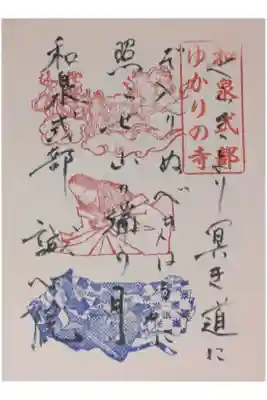 和泉式部
ゆかりの寺
より 冥き道に
ぞ入りぬべきはるかに
照らせ山の端の月
和泉式部 誠心院